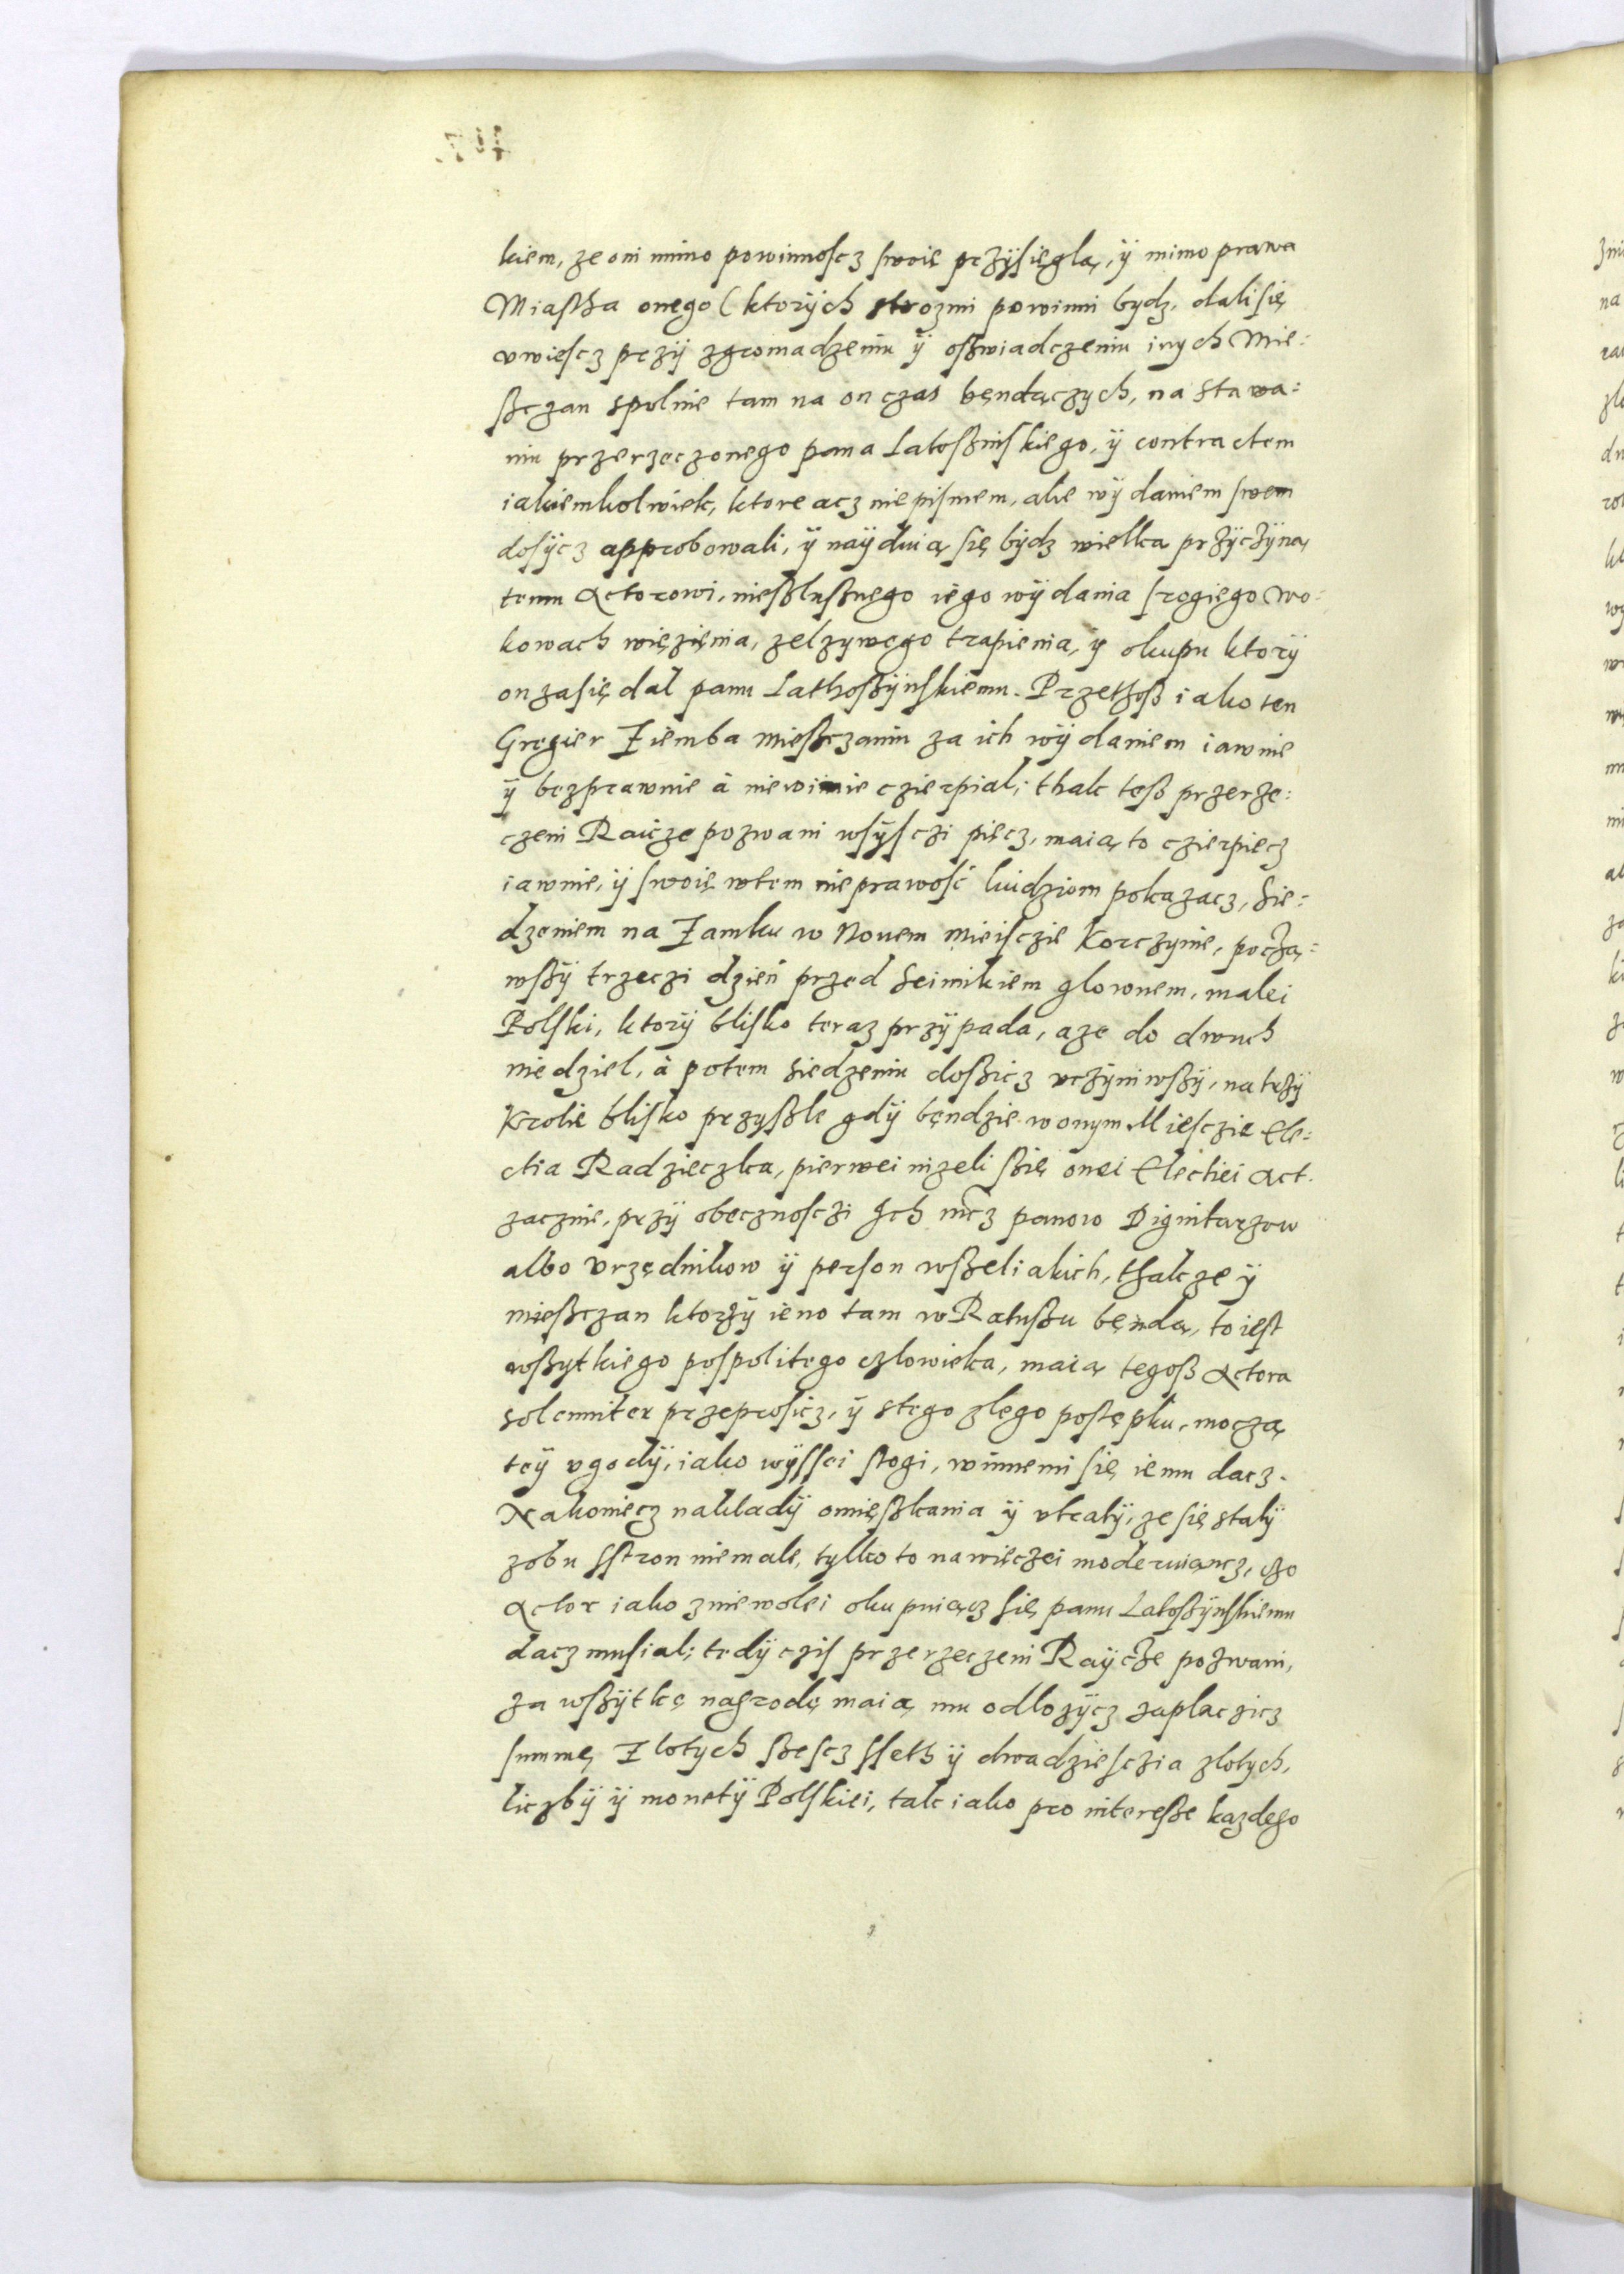 kiem, ze oni mimo powinnoscz swoię przÿsięgłą, ÿ mimo prawa
Miastha onego (ktorÿch strozmi powinni bydz, dali się
vwiescz przÿ zgromadzeniu ÿ oszwiadczeniu inych Mie:
szczan spolnie tam na on czas będączych, na stawa:
niu przerzeczonego pana Latoszinskiego, ÿ contractem
iakiemkolwiek, ktore acz nie pismem, ale wÿdaniem swem
dosÿcz approbowali, ÿ naÿduią się bÿdz wielka przÿczÿną
temu Actorowi, nieszlusznego iego wÿdania srogiego wo
kowach więzięnia, zelzywego trapienia, ÿ okupu ktorÿ
on zasię dał panu Lathoszÿnskiemu. Przethosz iako ten
Gregier Ziemba mieszczanin za ich wÿdaniem iawnie
ÿ bezprawnie à niewinnie czierpial; thak tesz przerze:
czeni Raicze pozwani wsÿsczi pięcz, maią to czierpiecz
iawnie, ÿ swoię wtem nieprawość luidziom pokazacz, Sie:
dzeniem na Zamku w Nouem Mieisczie Korczynie, począ:
wszÿ trzeczi dzień przed Seimikiem glownem, malei
Polski, ktorÿ blisko teraz przÿpada, aze do dwuch
niedziel, à potem siedzeniu doszicz vczÿniwszÿ, na trzÿ
Krolie blisko przyszle gdÿ będzie w onym Miesczie Ele:
ctia Radzieczka, pierwei nizeli szię onei Electiei Act
zacznie, przÿ obecznosczi Ich mcz panow Dignitarzow
albo vrzędnikow ÿ person wszeliakich, thakze ÿ
mieszczan ktorzÿ ieno tam w Ratuszu będą, to iest
wszytkiego pospolitego człowieka, maią tegosz Actora
solenniter przeprosicz, ÿ stego zlego postępku, moczą
teÿ vgodÿ, iako wÿssei stogi, winnemi się iemu dacz.
Nakoniecz nakladÿ omięszkania ÿ vtratÿ, ze się stalÿ
zobu sstron niemale, tylko to nawięczei moderuiącz, czo
Actor iako zniewolei okupuiącz się panu Latoszÿnskiemu
dacz musial; tedÿ czis przerzeczeni Raÿcze pozwani,
za wszÿtkę nagrodę maią mu odlozÿcz zaplaczicz
summę Zlotych szescz sseth ÿ dwadziesczia zlotych,
liczbÿ ÿ monetÿ Polskiei, tak iako pro interesse kazdego